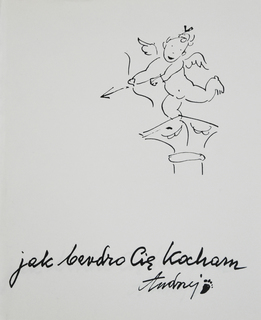 jak bardzo Cię kocham
Andrzej